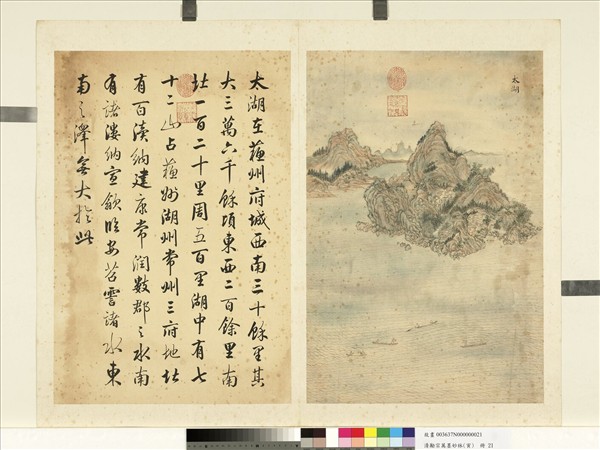 太湖
太湖在蘇州府城西南三十餘里其
大三萬六千餘頃東西二百餘里南
北一百二十里周五百里湖中有七
十二山占蘇州湖州常州三府地北
有百瀆納建康常潤數郡之水南
有諸漊納宣歙臨安苕霅諸水東
南之澤無大於此
故畫 003637N000000021
清勵宗萬墨妙珠林(寅) 冊 21